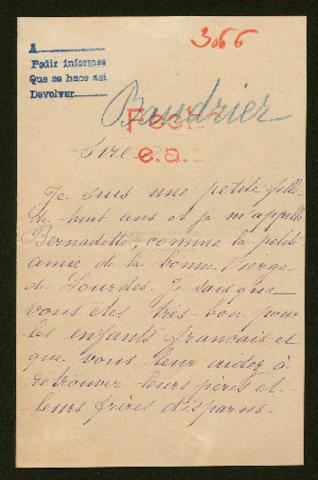 3066
A
Pedir informes
Que se hace asi
Devolver
Baudrier
Fecha
e.a.
Sire
Je suis une petite fille
de huit ans et je m'appelle
Bernadette, comme la petite
amie de la bonne Vierge
de Lourdes. Je sais que
vous êtes très bon pour
les enfants francais et
que vous leur aidez à
retrouver leurs pères et
leurs frères disparus.